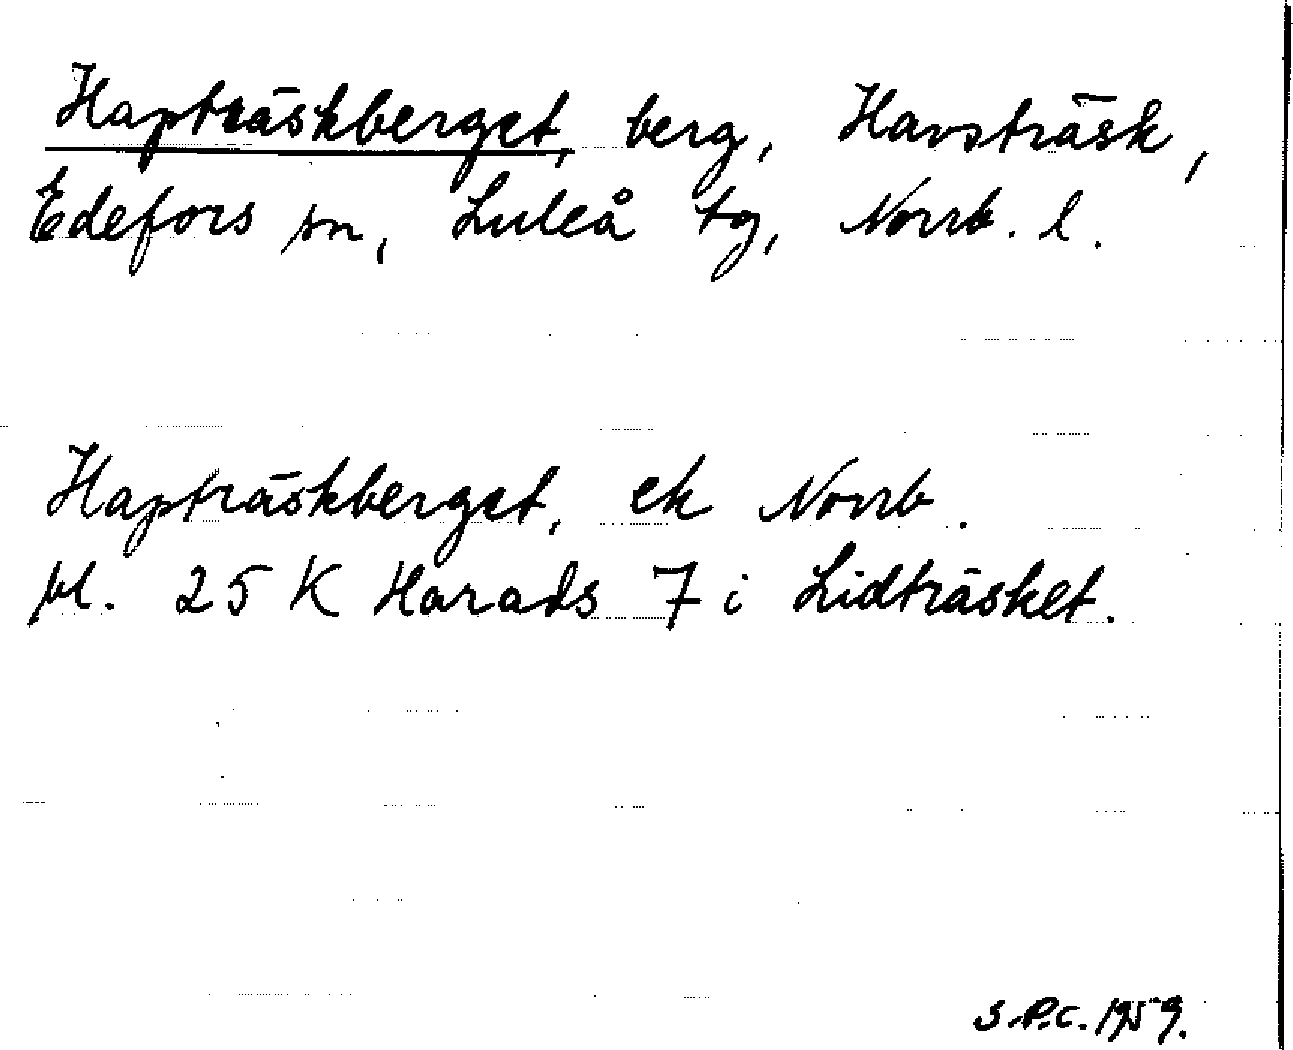 Hapträskberget, berg, Havsträsk,
Edefors sn, Luleå tg, Norrb. l.
Hapträskberget, ek Norrb.
bl. 25 K Harads 7 i Lidträsket.
S.P.C. 1959.